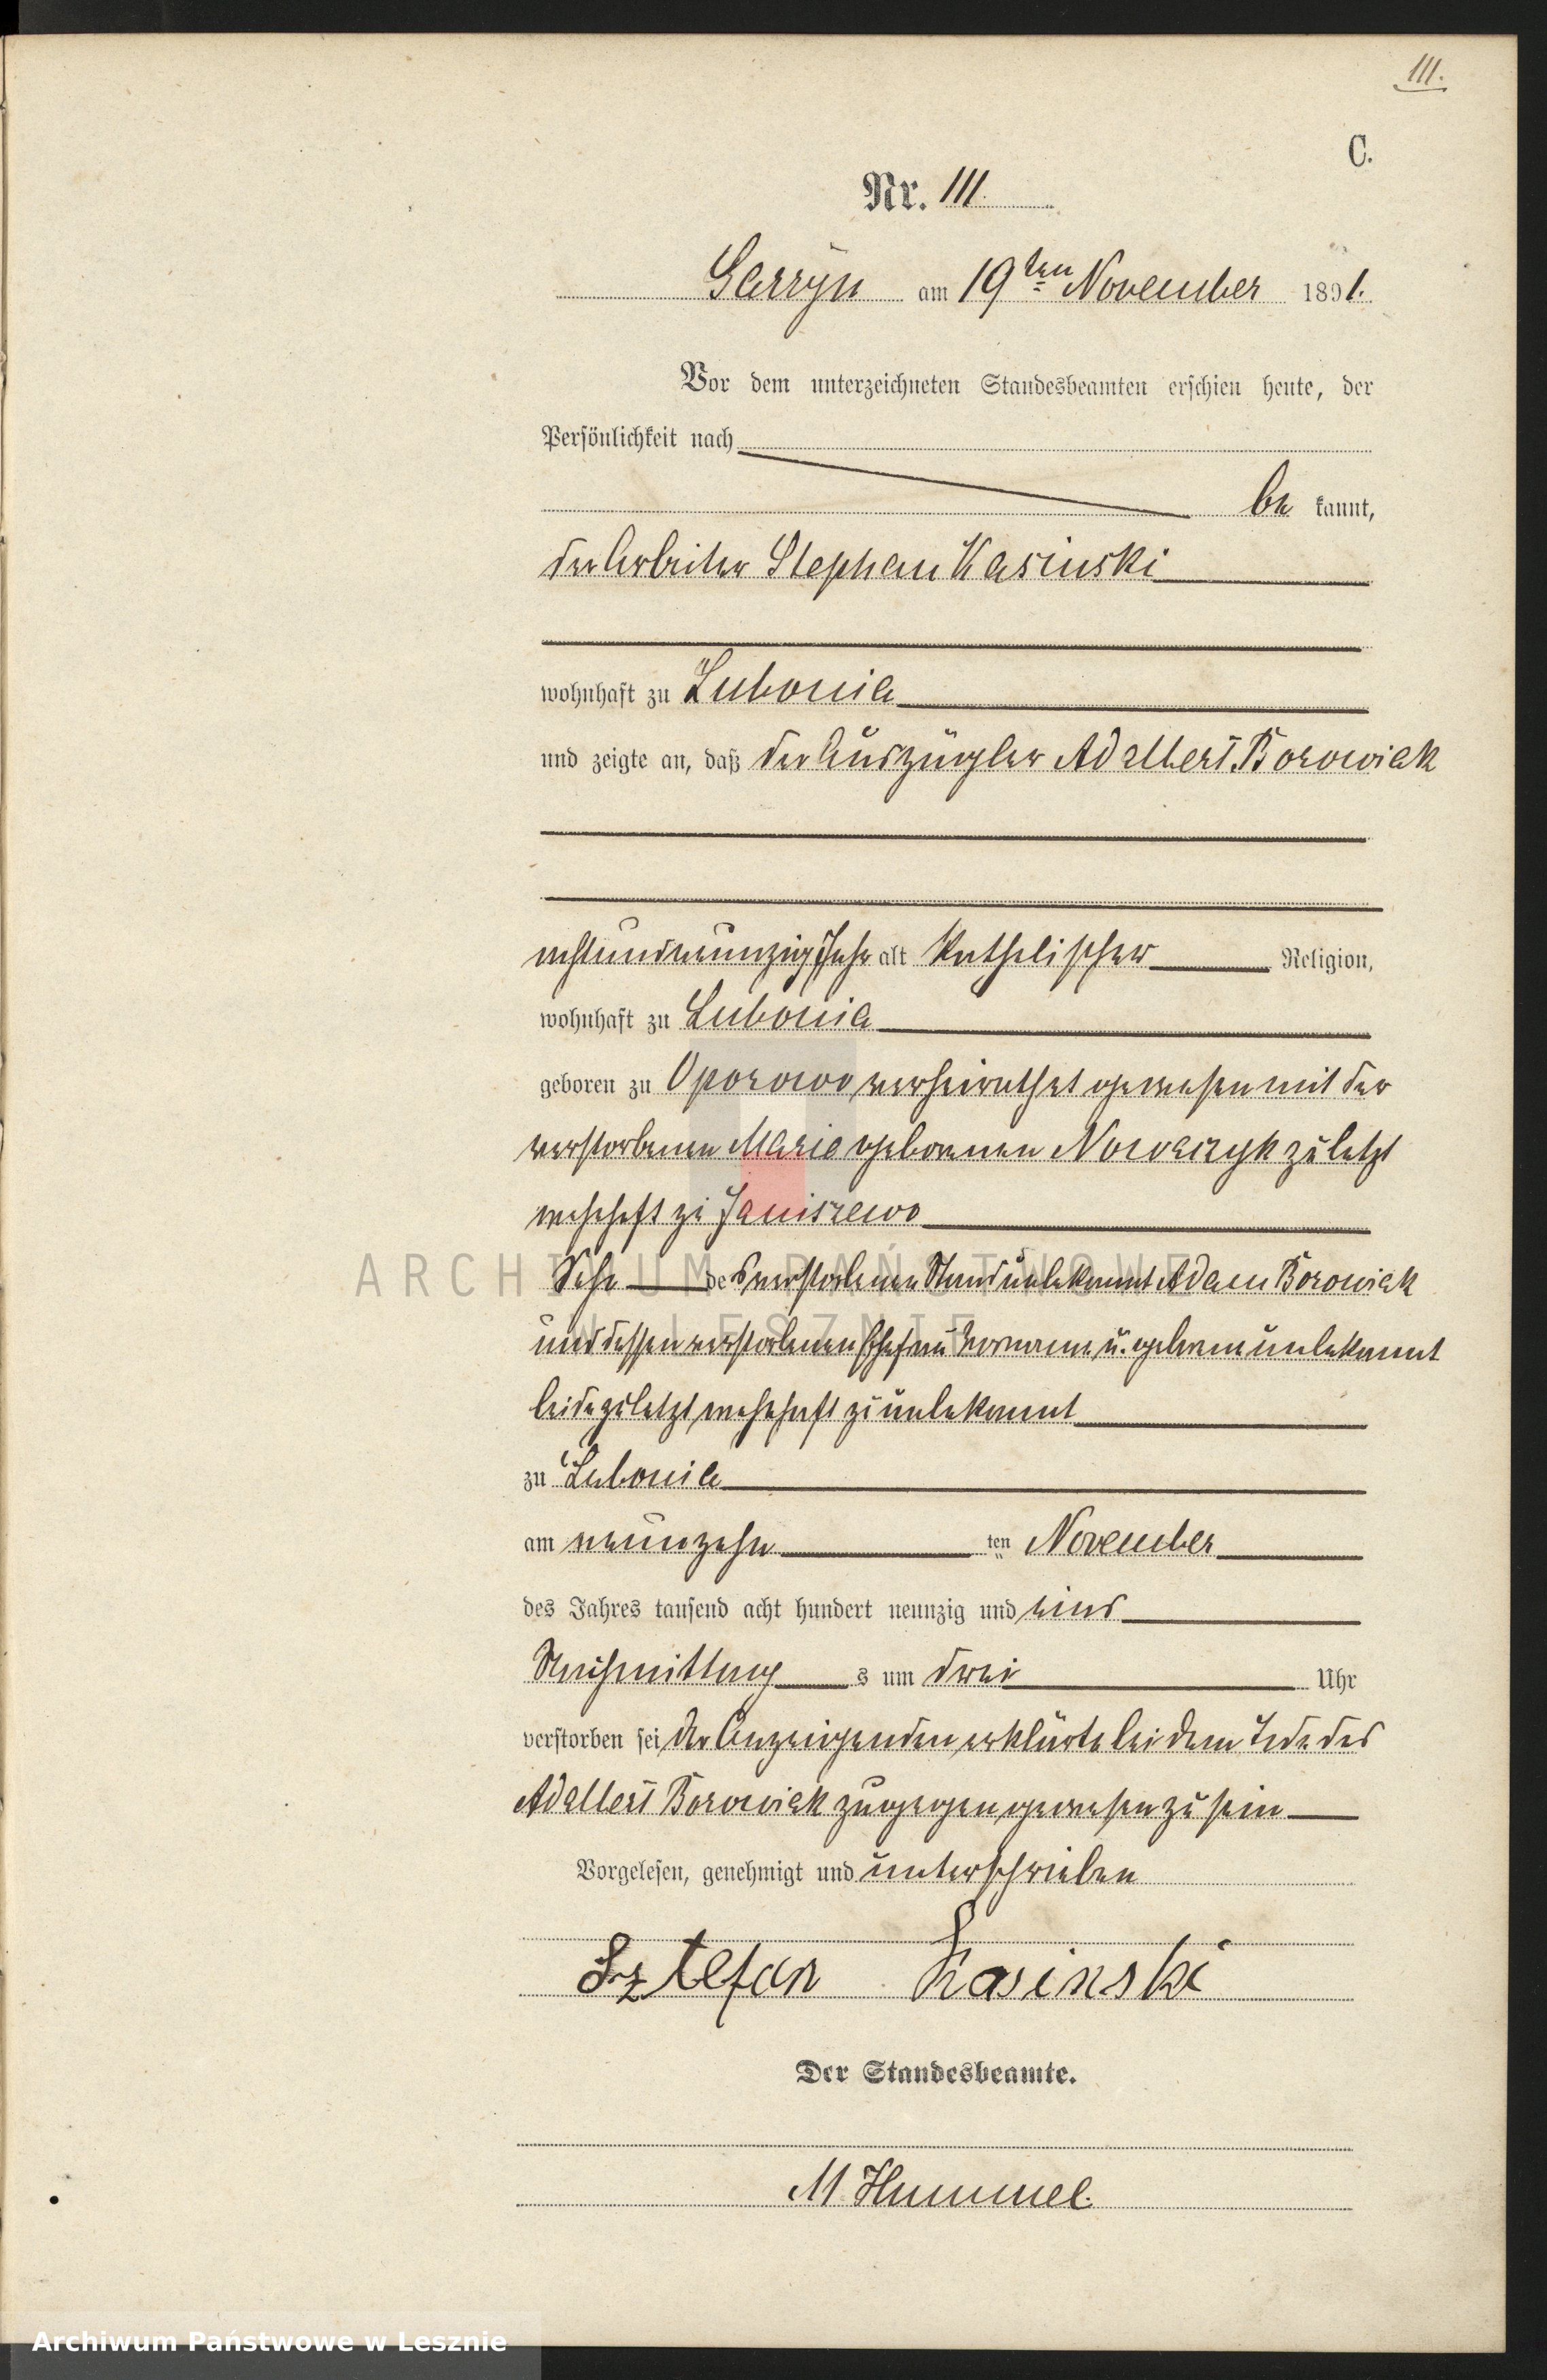 111.
C.
Nr. 111.
Garzyn am 19ten November 1891.
Vor dem unterzeichneten Standesbeamten erschien heute, der
Persönlichkeit nach
be kannt,
der Arbeiter Stephan Kasinski
wohnhaft zu Lubonia
und zeigte an, daß der Auszügler Adalbert Borowiak
achtundneunzig Jahr alt Katholischer Religion,
wohnhaft zu Lubonia
geboren zu Oporowo verheirathet gewesen mit der
verstorbenen Maria geborenen Nowaczyk zuletzt
wohnhaft zu Janiszewo
Sohn des verstorbenen Stand unbekannt Adam Borowiak
und dessen verstorbenen Ehefrau Vorname u. geborene unbekannt
beide zuletzt wohnhaft zu unbekannt
zu Lubonia
am neunzehn ten November
des Jahres tausend acht hundert neunzig und eins
Nachmittag s um drei Uhr
verstorben sei Der Anzeigenden erklärte bei dem Tode des
Adalbert Borowiak zugegen gewesen zu sein
Vorgelesen, genehmigt und unterschrieben
Sztefan Kasinski
Der Standesbeamte.
M Hummel.
ARCHIWUM PAŃSTWOWE
W LESZNIE
Archiwum Państwowe w Lesznie